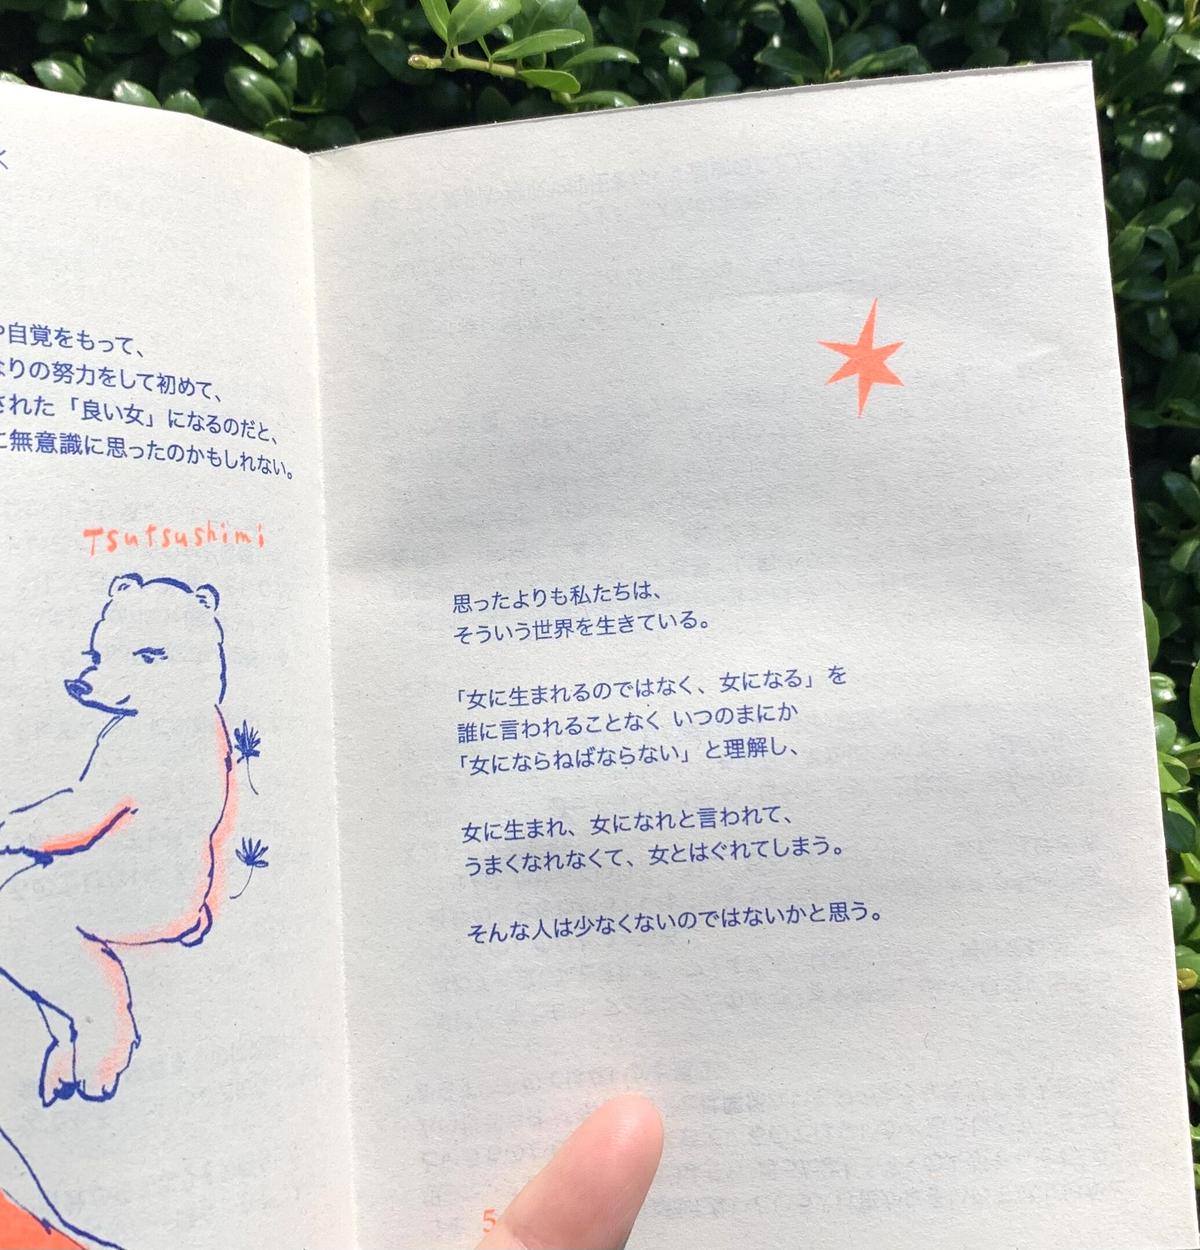 自覚をもって、
りの努力をして初めて、
された「良い女」になるのだと、
に無意識に思ったのかもしれない。
Tsutsushimi
思ったよりも私たちは、
そういう世界を生きている。
「女に生まれるのではなく、女になる」を
誰に言われることなく いつのまにか
「女にならねばならない」と理解し、
女に生まれ、女になれと言われて、
うまくなれなくて、女とはぐれてしまう。
そんな人は少なくないのではないかと思う。
5